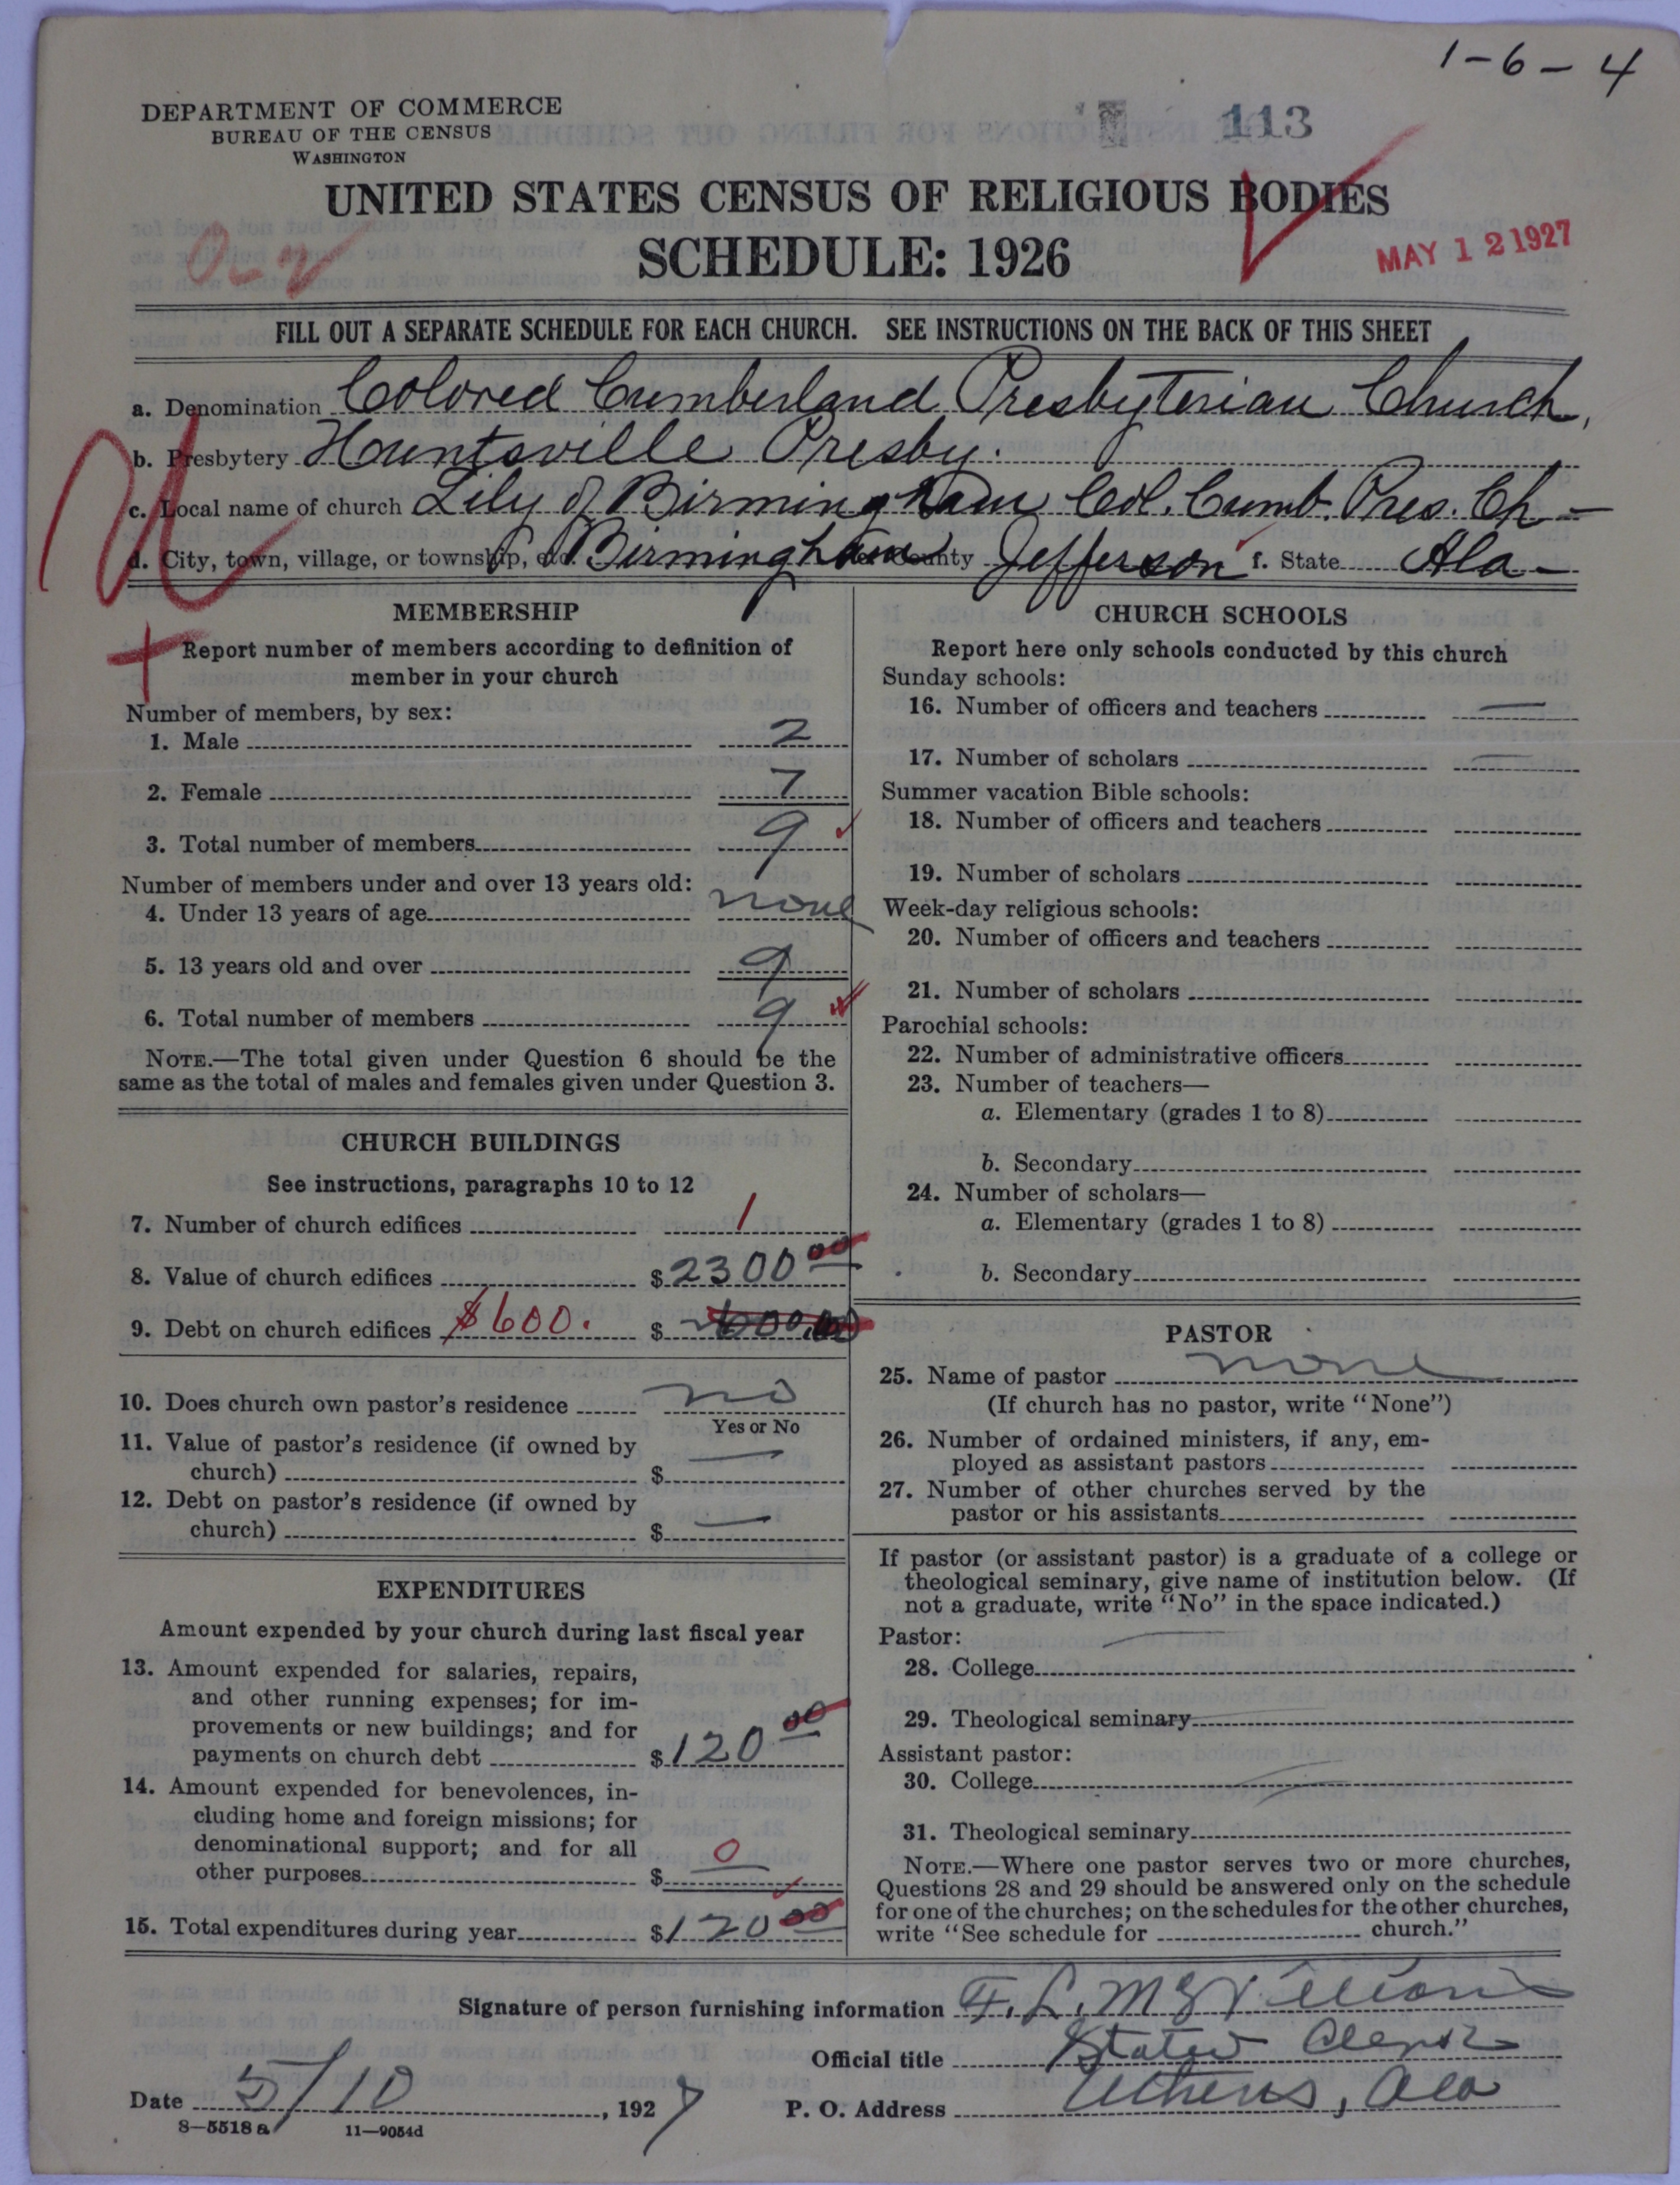 1-6-4
113
DEPARTMENT OF COMMERCE
BUREAU OF THE CENSUS
WASHINGTON
UNITED STATES CENSUS OF RELIGIOUS BODIES
SCHEDULE: 1926
MAY 12 1927
FILL OUT A SEPARATE SCHEDULE FOR EACH CHURCH. SEE INSTRUCTIONS ON THE BACK OF THIS SHEET
a. Denomination Colored Cumberland Presbyterian Church,
b. Presbytery Huntsville Presby.
c. Local name of church Lily of Birmingham Col. Cumb. Pres. Ch-
d. City, town, village, or township, etc. Birmingham e. County Jefferson f. State Ala-
MEMBERSHIP
Report number of members according to definition of
member in your church
Number of members, by sex:
1. Male 2
2. Female 7
3. Total number of members 9
Number of members under and over 13 years old:
4. Under 13 years of age none
5. 13 years old and over 9
6. Total number of members 9
NOTE.—The total given under Question 6 should be the
same as the total of males and females given under Question 3.
CHURCH BUILDINGS
See instructions, paragraphs 10 to 12
7. Number of church edifices 1
8. Value of church edifices $2300 00
9. Debt on church edifices $600. $ 600.00
10. Does church own pastor's residence no
Yes or No
11. Value of pastor's residence (if owned by
church) $ —
12. Debt on pastor's residence (if owned by
church) $ —
EXPENDITURES
Amount expended by your church during last fiscal year
13. Amount expended for salaries, repairs,
and other running expenses; for im-
provements or new buildings; and for
payments on church debt $120 00
14. Amount expended for benevolences, in-
cluding home and foreign missions; for
denominational support; and for all
other purposes $ 0
15. Total expenditures during year $120 00
CHURCH SCHOOLS
Report here only schools conducted by this church
Sunday schools:
16. Number of officers and teachers —
17. Number of scholars —
Summer vacation Bible schools:
18. Number of officers and teachers
19. Number of scholars
Week-day religious schools:
20. Number of officers and teachers
21. Number of scholars
Parochial schools:
22. Number of administrative officers
23. Number of teachers—
a. Elementary (grades 1 to 8)
b. Secondary
24. Number of scholars—
a. Elementary (grades 1 to 8)
b. Secondary
PASTOR
25. Name of pastor none
(If church has no pastor, write "None")
26. Number of ordained ministers, if any, em-
ployed as assistant pastors
27. Number of other churches served by the
pastor or his assistants
If pastor (or assistant pastor) is a graduate of a college or
theological seminary, give name of institution below. (If
not a graduate, write "No" in the space indicated.)
Pastor:
28. College
29. Theological seminary
Assistant pastor:
30. College
31. Theological seminary
NOTE.—Where one pastor serves two or more churches,
Questions 28 and 29 should be answered only on the schedule
for one of the churches; on the schedules for the other churches,
write "See schedule for church."
Signature of person furnishing information F. L.
Official title Stated Clerk
Date 5/10, 1927
P. O. Address Athens, Ala
8—5518 a 11—9054d